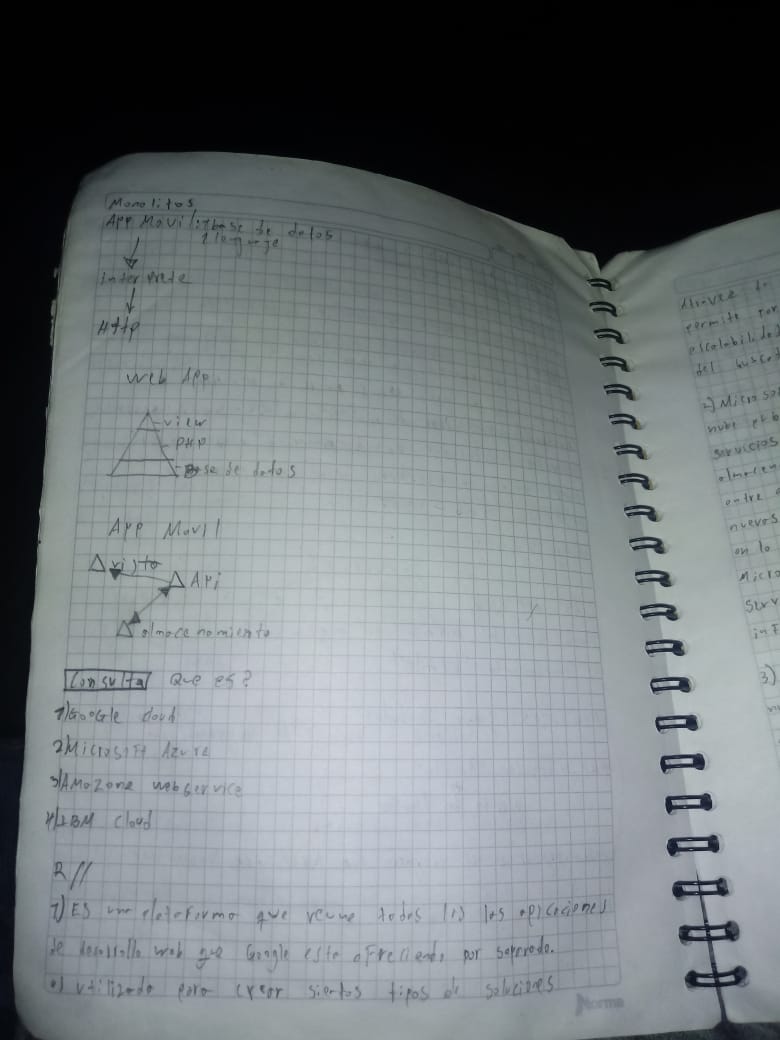 Monolitos
App Movil base de datos
1 lenguaje
Http
Web App
view
PHP
Base de datos
App Movil
vista
Api
almacenamiento
Consulta Que es?
1) Google cloud
2) Microsoft Azure
3) AMazone webservice
4) IBM cloud
R//
1) ES una plataforma que reune todas las aplicaciones
de desarrollo web que Google esta ofreciendo por separado.
es utilizada para crear siertos tipos de soluciones
Norma
atravez
permite
escalabilidad
del
2) Microso
nube
servicios
almacen
entre
nuevos
en lo
Micro
Serv
3)